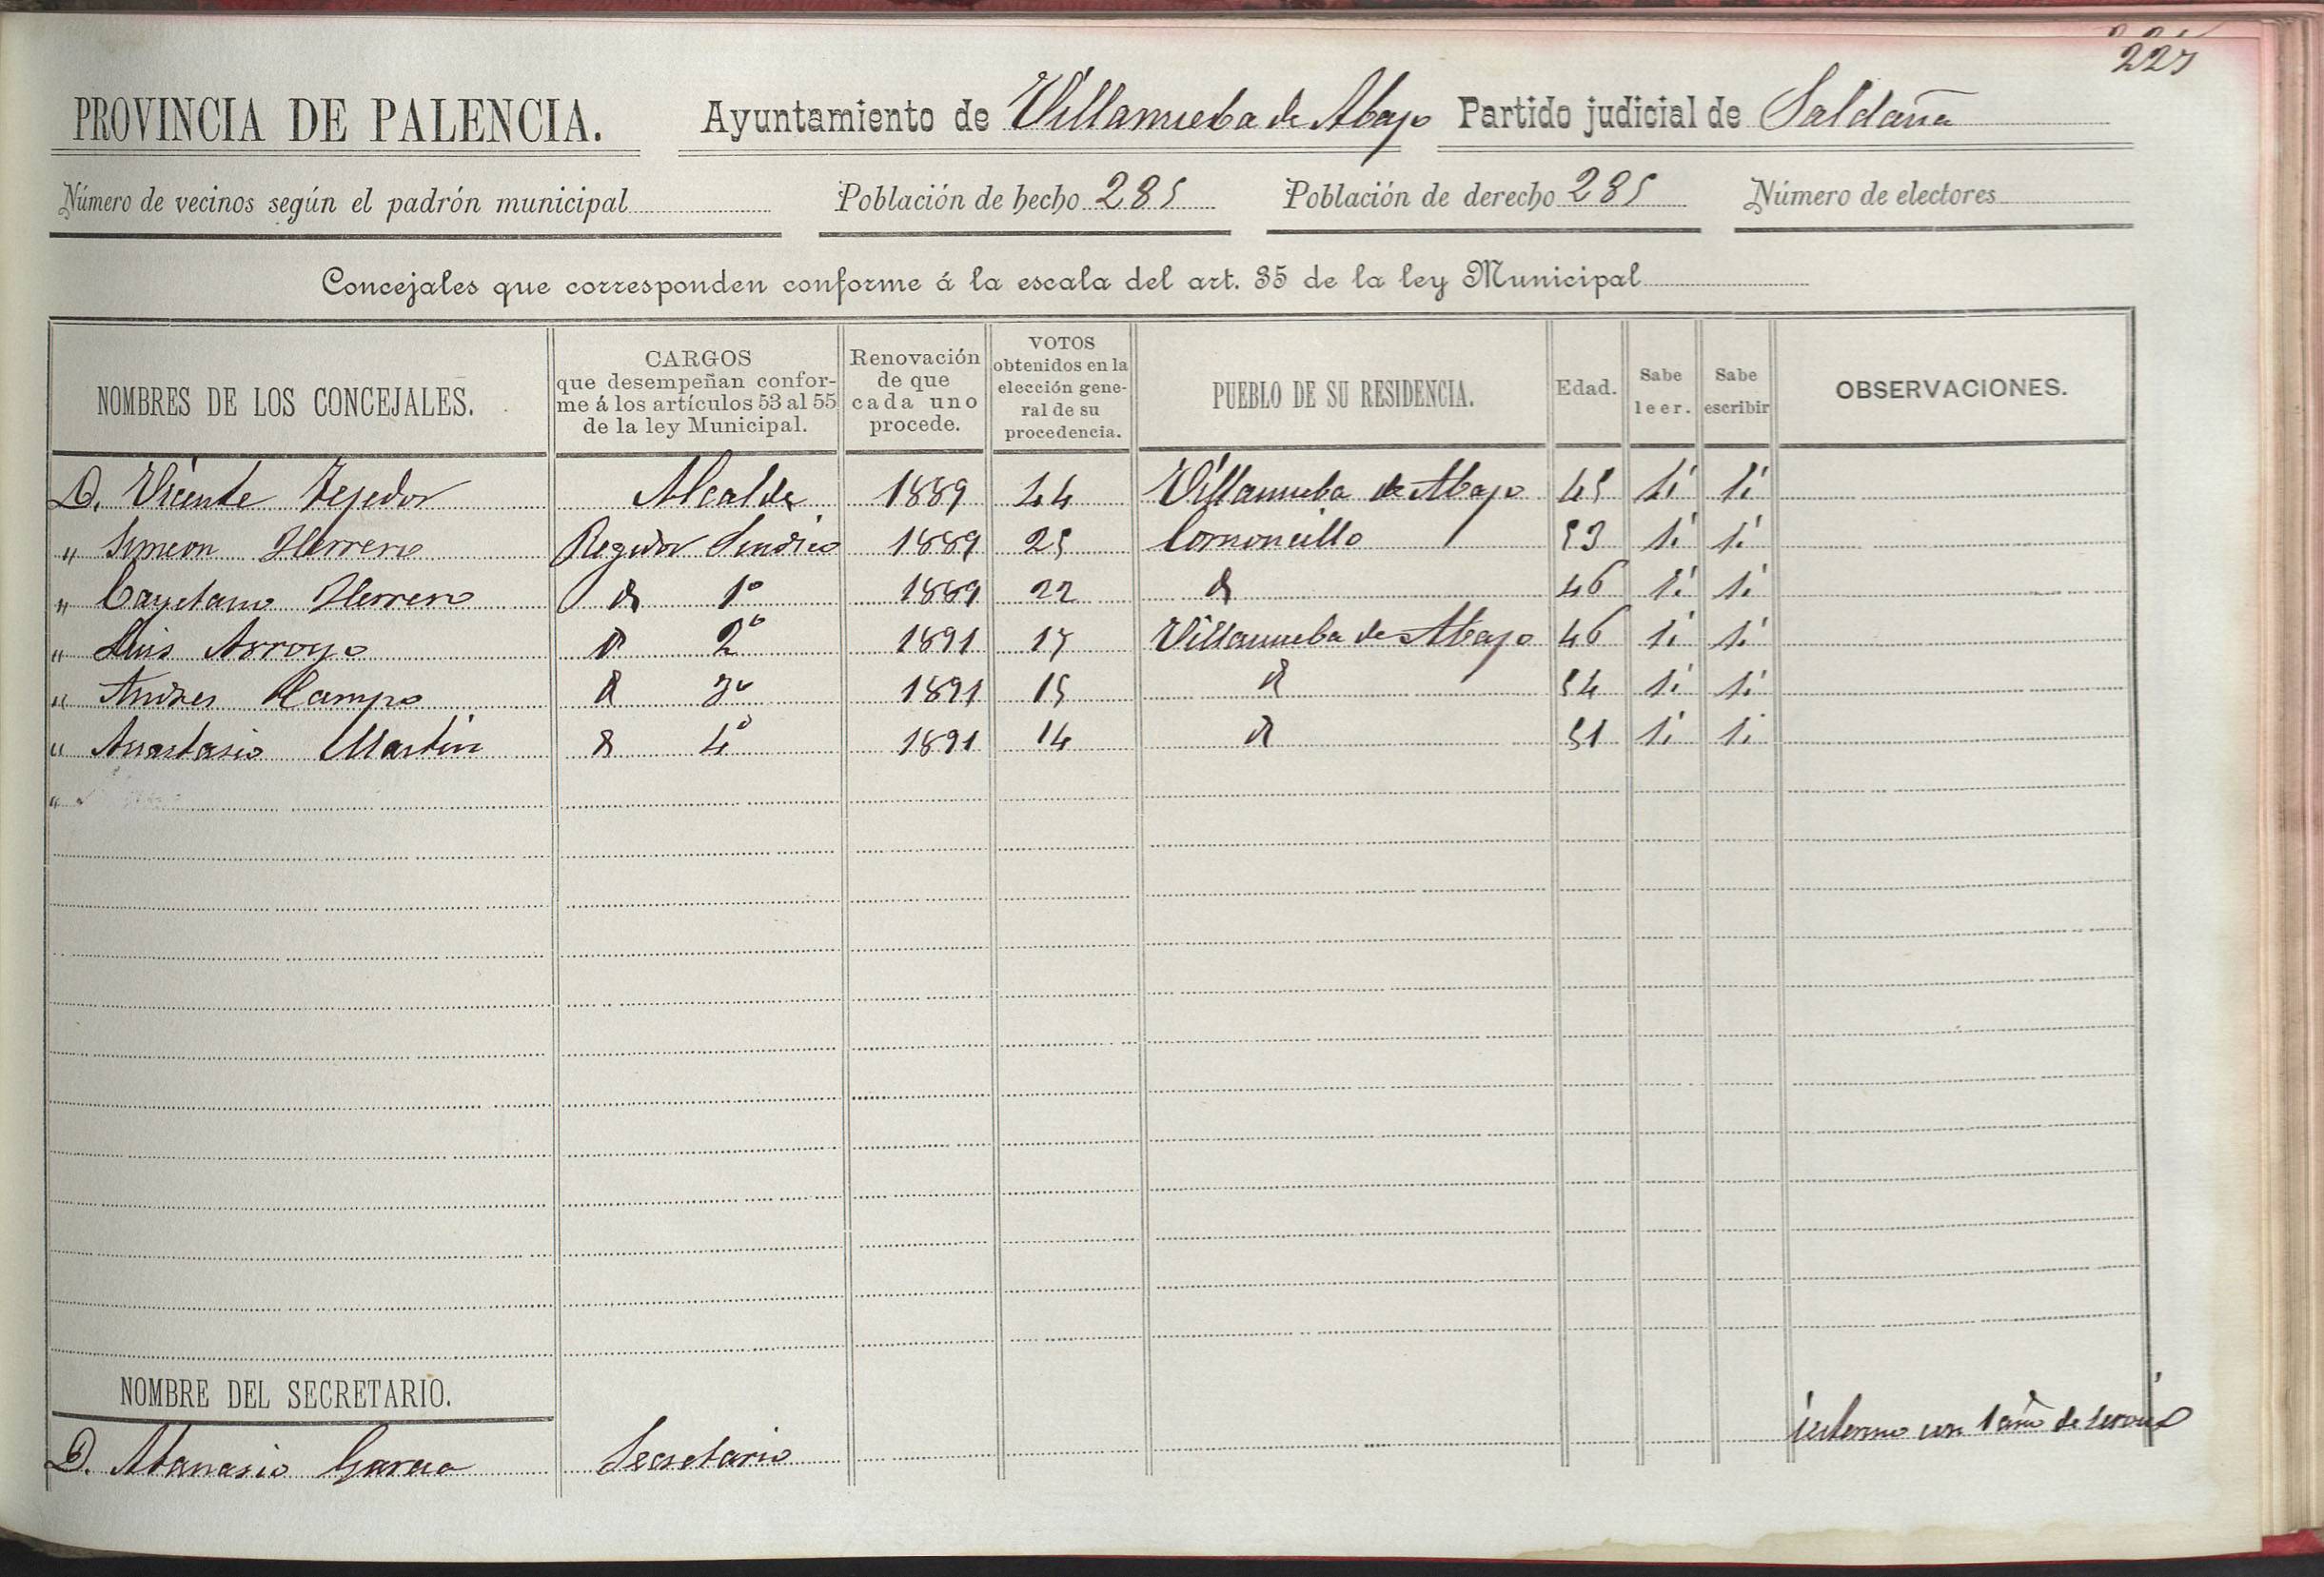 227
PROVINCIA DE PALENCIA. Ayuntamiento de Villanueba de Abajo Partido judicial de Saldaña
Número de vecinos según el padrón municipal Población de hecho 285 Población de derecho 285 Número de electores
Concejales que corresponden conforme á la escala del art. 35 de la ley Municipal
NOMBRES DE LOS CONCEJALES. CARGOS que desempeñan confor-me á los artículos 53 al 55 de la ley Municipal. Renovación de que cada uno procede. VOTOS obtenidos en la elección gene-ral de su procedencia. PUEBLO DE SU RESIDENCIA. Edad. Sabe leer. Sabe escribir OBSERVACIONES.
D. Vicente Tejedor Alcalde 1889 44 Villanueba de Abajo 45 Si Si
" Simeon Herrero Regidor Sindico 1889 25 Cornoncillo 53 Si Si
" Cayetano Herrero d 1º 1889 22 d 46 Si Si
" Luis Arroyo d 2º 1891 17 Villanueba de Abajo 46 Si Si
" Andres Campo d 3º 1891 15 d 54 Si Si
" Anastasio Martin d 4º 1891 14 d 51 Si Si
"
NOMBRE DEL SECRETARIO.
D. Atanasio Garcia Secretario interino con 1 año de servicio